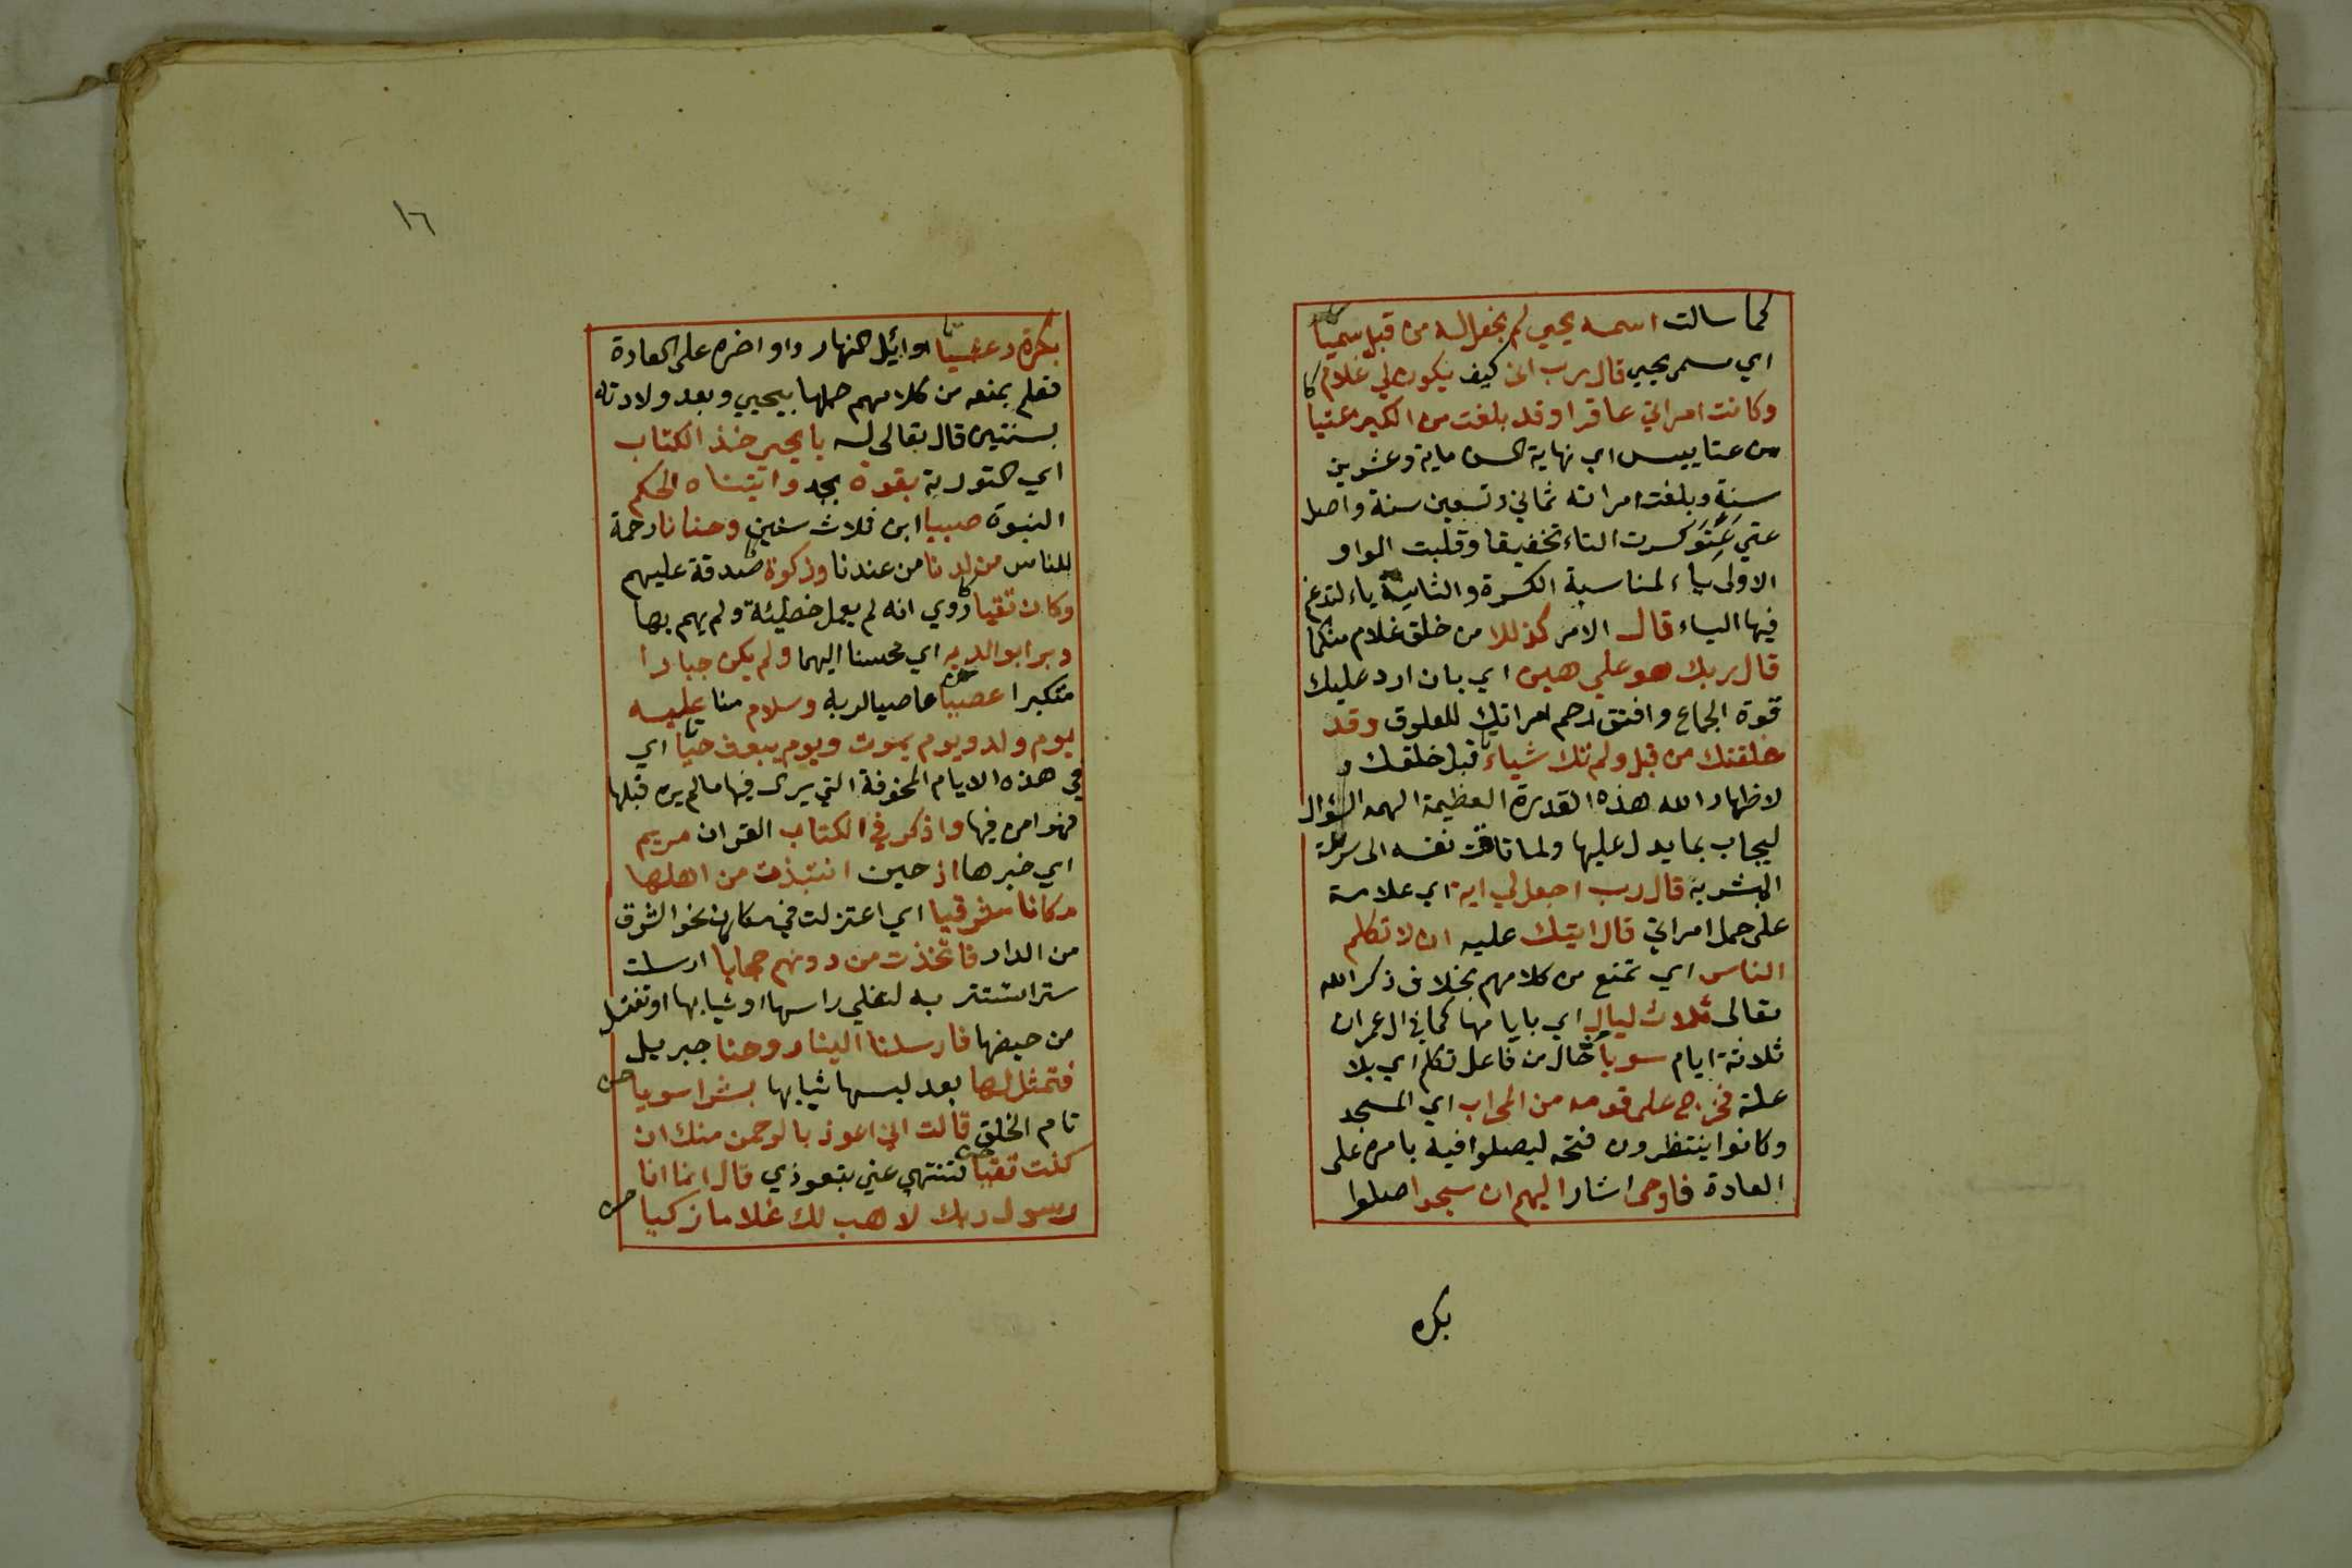 كما سالت اسمه يحيي لم نجعل له من قبل سميّا
اي مسمى بيحيي قال رب انى كيف يكون لي غلام
وكانت امراتي عاقرا وقد بلغت من الكبر عتيا
من عتا يبس اي نهاية السن ماية وعشرين
سنة وبلغت امراته ثماني وتسعين سنة واصل
عتي عتو كسرت التاء تخفيفا وقلبت الواو
الاولى ياء لمناسبة الكسرة والثانية ياء لتدغم
فيها الياء قال الامر كذلك من خلق غلام منكما
قال ربك هو علي هين اي بان ارد عليك
قوة الجماع وافتق رحم امراتك للعلوق وقد
خلقتك من قبل ولم تك شياء قبل خلقك و
لاظهار الله هذه القدرة العظيمة الهمه السؤال
ليجاب بما يدل عليها ولما تاقت نفسه الى سرعة
المبشر به قال رب اجعل لي اية اي علامة
على حمل امراتي قال ايتك عليه ان لا تكلم
الناس اي تمنع من كلامهم بخلاف ذكر الله
تعالى ثلاث ليال اي بايامها كما في ال عمران
ثلاثة ايام سويا حال من فاعل تكلم اي بلا
علة فخرج على قومه من المحراب اي المسجد
وكانوا ينتظرون فتحه ليصلوا فيه بامره على
العادة فاوحى اشار اليهم ان سبحوا صلوا
بكره
١٦
بكرة وعشيّا اوائل النهار واواخره على العادة
فعلم بمنعه من كلامهم حملها بيحيي وبعد ولادته
بسنتين قال تعالى له يا يحيي خذ الكتاب
اي التورية بقوة بجد واتيناه الحكم
النبوة صبيا ابن ثلاث سنين وحنانا رحمة
للناس من لدنا من عندنا وزكوة صدقة عليهم
وكان تقيا روي انه لم يعمل خطيئة ولم يهم بها
وبرا بوالديه اي محسنا اليهما ولم يكن جبارا
متكبرا عصيا عاصيا لربه وسلام منا عليه
يوم ولد ويوم يموت ويوم يبعث حيّا اي
في هذه الايام المخوفة التي يرى فيها ما لم يره قبلها
فهو امن فيها واذكر في الكتاب القران مريم
اي خبرها اذ حين انتبذت من اهلها
مكانا شرقيا اي اعتزلت في مكان نحو الشرق
من الدار فاتخذت من دونهم حجابا ارسلت
سترا تستتر به لتفلي راسها او ثيابها او تغتسل
من حيضها فارسلنا الينا روحنا جبريل
فتمثل لها بعد لبسها ثيابها بشرا سويا
تام الخلق قالت اني اعوذ بالرحمن منك ان
كنت تقيا فتنتهي عني بتعوذي قال انما انا
رسول ربك لاهب لك غلاما زكيا